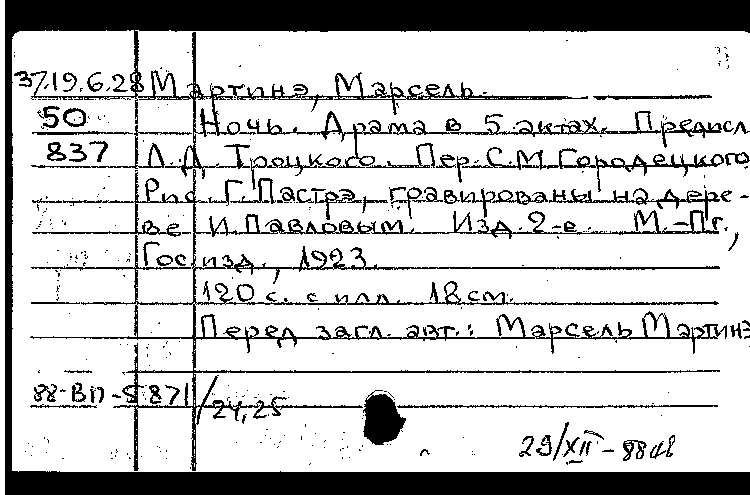 37.19.6.28 Мартинэ, Марсель.
50 Ночь. Драма в 5 актах. Предисл.
837 Л.Д. Троцкого. Пер. С.М. Городецкого
Рис. Г. Пастрэ, гравированы на дере-
ве И. Павловым. Изд. 2-е. М.-Пг.,
Госизд., 1923.
120 с. с илл. 18 см.
Перед загл. авт.: Марсель Мартинэ
88-ВП-5871/24,25
29/XII-88